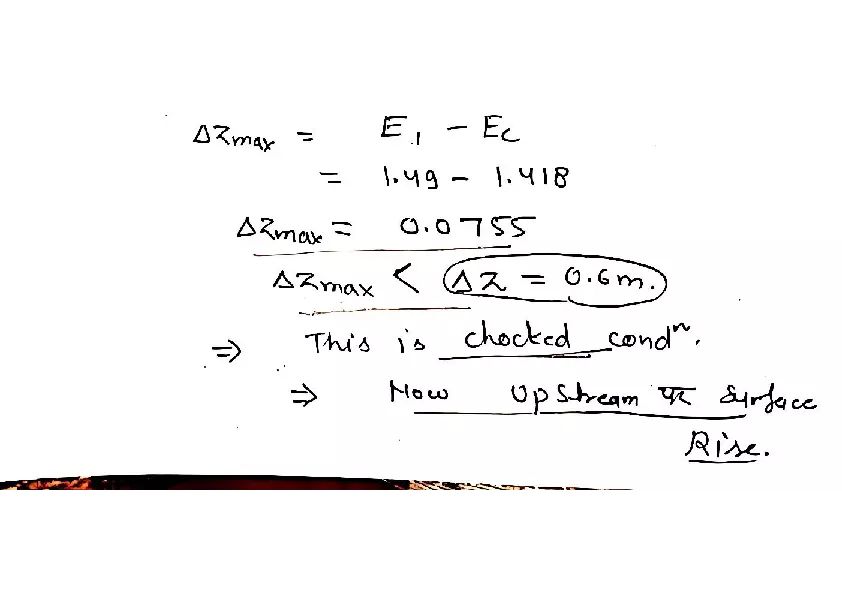 ΔZmax = E1 - Ec
= 1.49 - 1.418
ΔZmax = 0.0755
ΔZmax < ΔZ = 0.6m.
⇒ This is chocked condⁿ.
⇒ Now Upstream पर Surface
Rise.